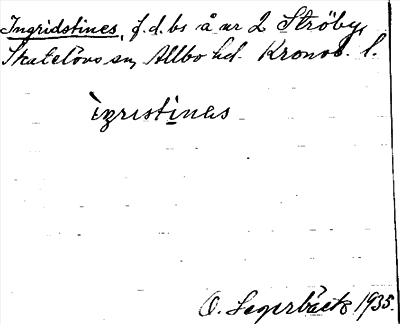 Ingridstines, f.d. bs å nr 2 Ströby,
Skatelövs sn, Allbo hd. Kronob. l.
ìŋrıstines
O. Segerbäck 1935.